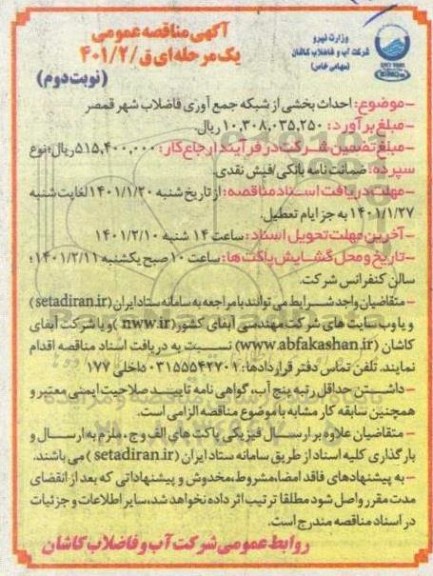 آگهی مناقصه عمومی
یک مرحله ای ق/۴۰۱/۲
(نوبت دوم)
وزارت نیرو
شرکت آب و فاضلاب کاشان
(سهامی خاص)
-موضوع: احداث بخشی از شبکه جمع آوری فاضلاب شهر قمصر
-مبلغ برآورد: ۱۰,۳۰۸,۰۳۵,۲۵۰ ریال.
-مبلغ تضمین شرکت در فرآیند ارجاع کار: ۵۱۵,۴۰۰,۰۰۰ ریال؛ نوع
سپرده: ضمانت نامه بانکی/فیش نقدی.
-مهلت دریافت اسناد مناقصه: از تاریخ شنبه ۱۴۰۱/۱/۲۰ لغایت شنبه
۱۴۰۱/۱/۲۷ به جز ایام تعطیل.
-آخرین مهلت تحویل اسناد: ساعت ۱۴ شنبه ۱۴۰۱/۲/۱۰
-تاریخ و محل گشایش پاکت ها: ساعت ۱۰ صبح یکشنبه ۱۴۰۱/۲/۱۱؛
سالن کنفرانس شرکت.
-متقاضیان واجد شرایط می توانند با مراجعه به سامانه ستاد ایران (setadiran.ir)
و یا وب سایت های شرکت مهندسی آبفای کشور (nww.ir) و یا شرکت آبفای
کاشان (www.abfakashan.ir) نسبت به دریافت اسناد مناقصه اقدام
نمایند. تلفن تماس دفتر قراردادها: ۰۳۱۵۵۵۴۲۷۰۱ داخلی ۱۷۷
-داشتن حداقل رتبه پنج آب، گواهی نامه تایید صلاحیت ایمنی معتبر و
همچنین سابقه کار مشابه با موضوع مناقصه الزامی است.
-متقاضیان علاوه بر ارسال فیزیکی پاکت های الف و ج، ملزم به ارسال و
بارگذاری کلیه اسناد از طریق سامانه ستاد ایران (setadiran.ir) می باشند.
-به پیشنهادهای فاقد امضا، مشروط، مخدوش و پیشنهاداتی که بعد از انقضای
مدت مقرر واصل شود مطلقا ترتیب اثر داده نخواهد شد، سایر اطلاعات و جزئیات
در اسناد مناقصه مندرج است.
روابط عمومی شرکت آب و فاضلاب کاشان